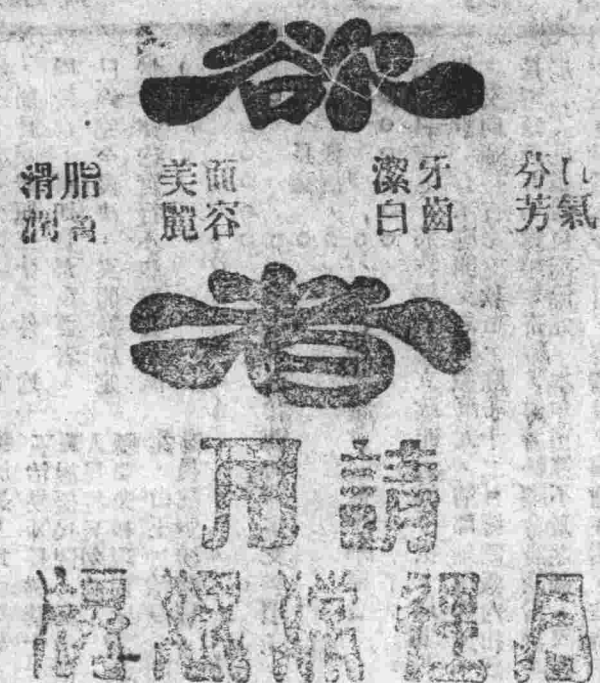 欲
口氣芬芳
牙齒潔白
面容美麗
脂滑潤
者
請用
月裡嫦娥牌